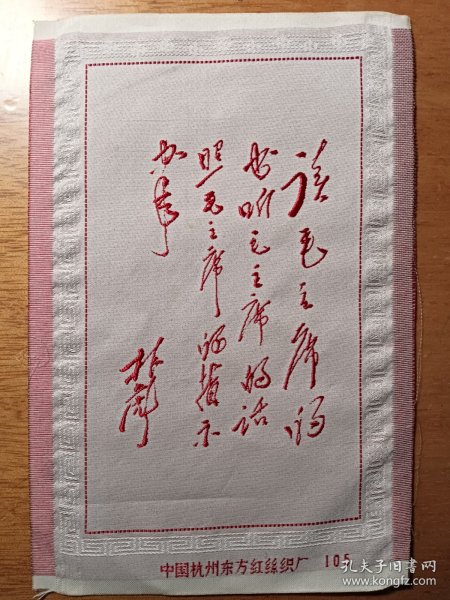 读毛主席的
书听毛主席的话
照毛主席的指示
办事
林彪
中国杭州东方红丝织厂 105
孔夫子旧书网
kongfz.com